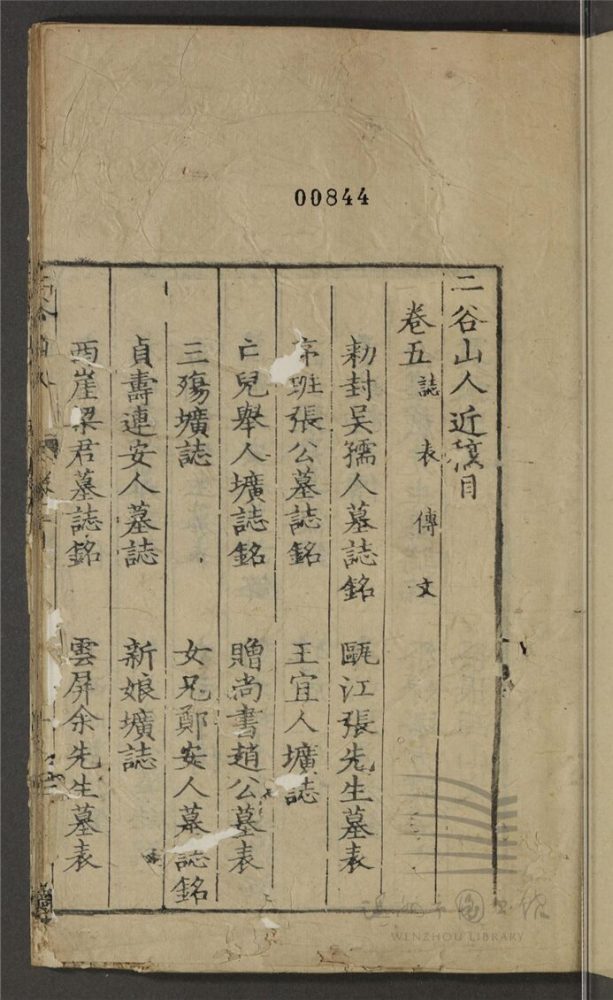 00844
二谷山人近稿目
卷五 誌 表 傳 文
勅封吴孺人墓誌銘 甌江張先生墓表
班張公墓誌銘 王宜人壙誌
亡兒舉人壙誌銘 贈尚書趙公墓表
三殤壙誌 女兄鄭安人墓誌銘
貞壽連安人墓誌 新娘壙誌
西崖梁君墓誌銘 雲屏余先生墓表
WENZHOU LIBRARY